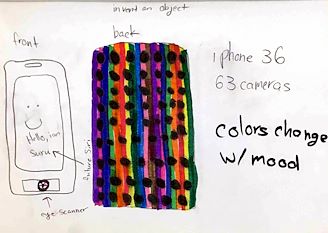 invent an object
front
back
iphone 36
63 cameras
colors change
w/ mood
Hello, ian
future Siri
eye scanner